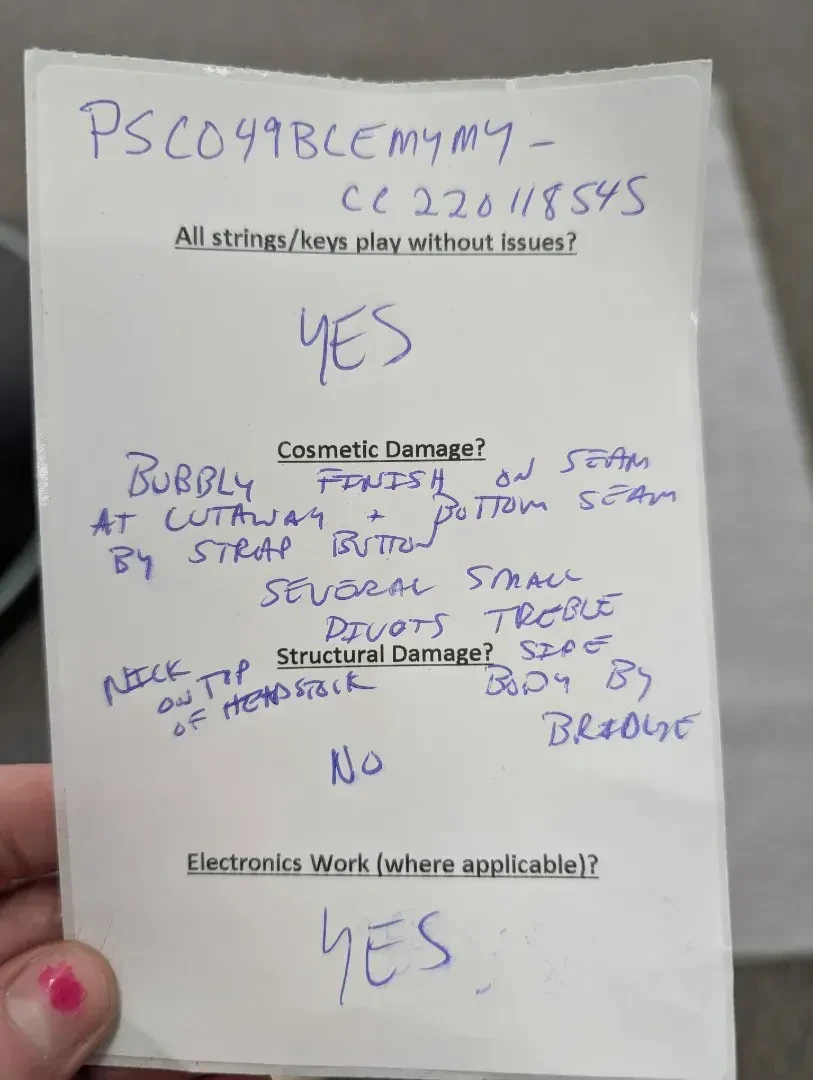 PSC049BLEMYMY-
CC220118545
All strings/keys play without issues?
YES
Cosmetic Damage?
BUBBLY FINISH ON SEAM
AT CUTAWAY + BOTTOM SEAM
BY STRAP BUTTON
SEVERAL SMALL
DIVOTS TREBLE
SIDE
BODY BY
BRIDGE
NICK
ON TOP
OF HEADSTOCK
Structural Damage?
NO
Electronics Work (where applicable)?
YES